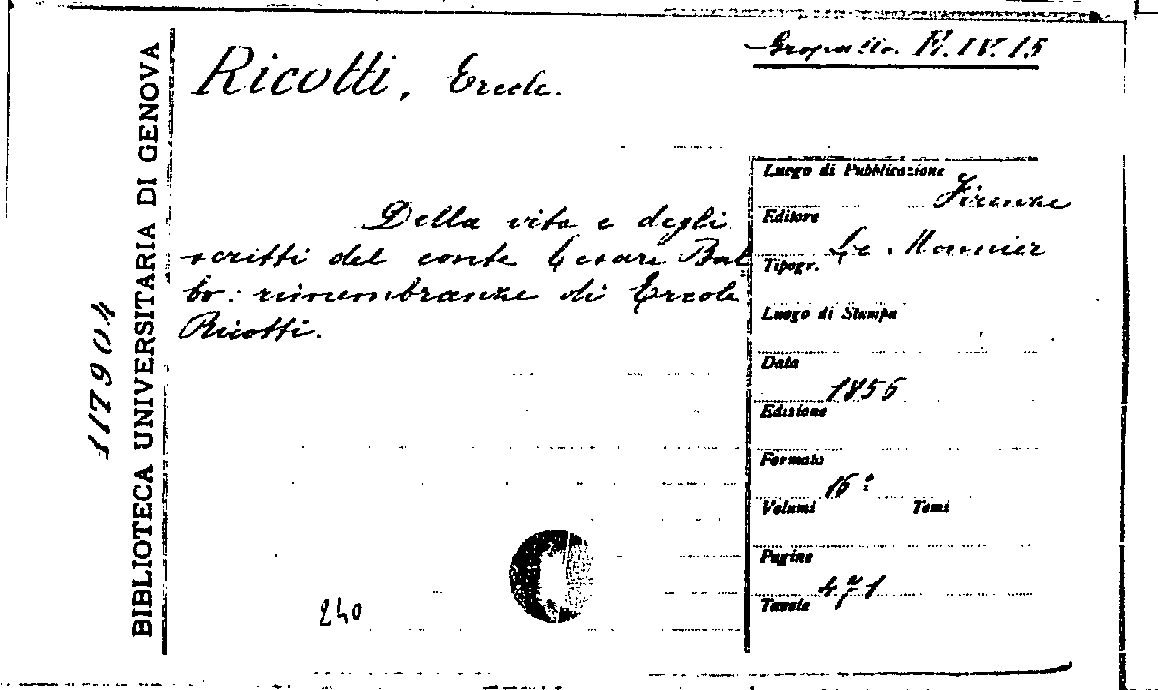 Gropallo. R.IV.15
Ricotti, Ercole.
BIBLIOTECA UNIVERSITARIA DI GENOVA
117904
Della vita e degli
scritti del conte Cesare Bal
bo: rimembranze di Ercole
Ricotti.
Luogo di Pubblicazione
Firenze
Editore
Le Monnier
Tipogr.
Luogo di Stampa
Data
1856
Edizione
Formato
16°
Volumi Tomi
Pagine
471
Tavole
240